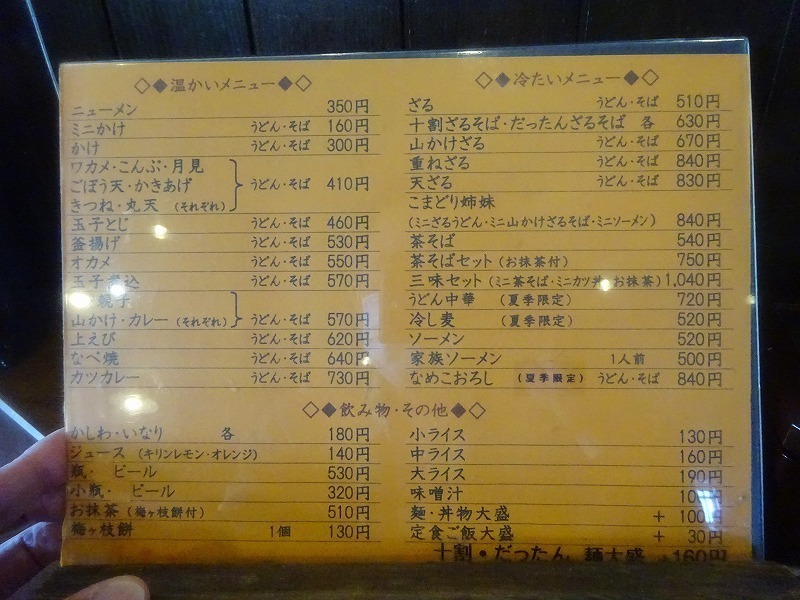 ◇◆温かいメニュー◆◇
ニューメン 350円
ミニかけ うどん・そば 160円
かけ うどん・そば 300円
ワカメ・こんぶ・月見
ごぼう天・かきあげ うどん・そば 410円
きつね・丸天 (それぞれ)
玉子とじ うどん・そば 460円
釜揚げ うどん・そば 530円
オカメ うどん・そば 550円
玉子 込 うどん・そば 570円
親子
山かけ・カレー (それぞれ) うどん・そば 570円
上えび うどん・そば 620円
なべ焼 うどん・そば 640円
カツカレー うどん・そば 730円
◇◆冷たいメニュー◆◇
ざる うどん・そば 510円
十割ざるそば・だったんざるそば 各 630円
山かけざる うどん・そば 670円
重ねざる うどん・そば 840円
天ざる うどん・そば 830円
こまどり姉妹
(ミニざるうどん・ミニ山かけざるそば・ミニソーメン) 840円
茶そば 540円
茶そばセット (お抹茶付) 750円
三味セット (ミニ茶そば・ミニカツ丼・お抹茶) 1,040円
うどん中華 (夏季限定) 720円
冷し麦 (夏季限定) 520円
ソーメン 520円
家族ソーメン 1人前 500円
なめこおろし (夏季限定) うどん・そば 840円
◇◆飲み物・その他◆◇
かしわ・いなり 各 180円
ジュース (キリンレモン・オレンジ) 140円
瓶・ ビール 530円
小瓶・ ビール 320円
お抹茶 (梅ヶ枝餅付) 510円
梅ヶ枝餅 1個 130円
小ライス 130円
中ライス 160円
大ライス 190円
味噌汁
麺・丼物大盛 + 100円
定食ご飯大盛 + 30円
十割・だったん 麺大盛 +160円